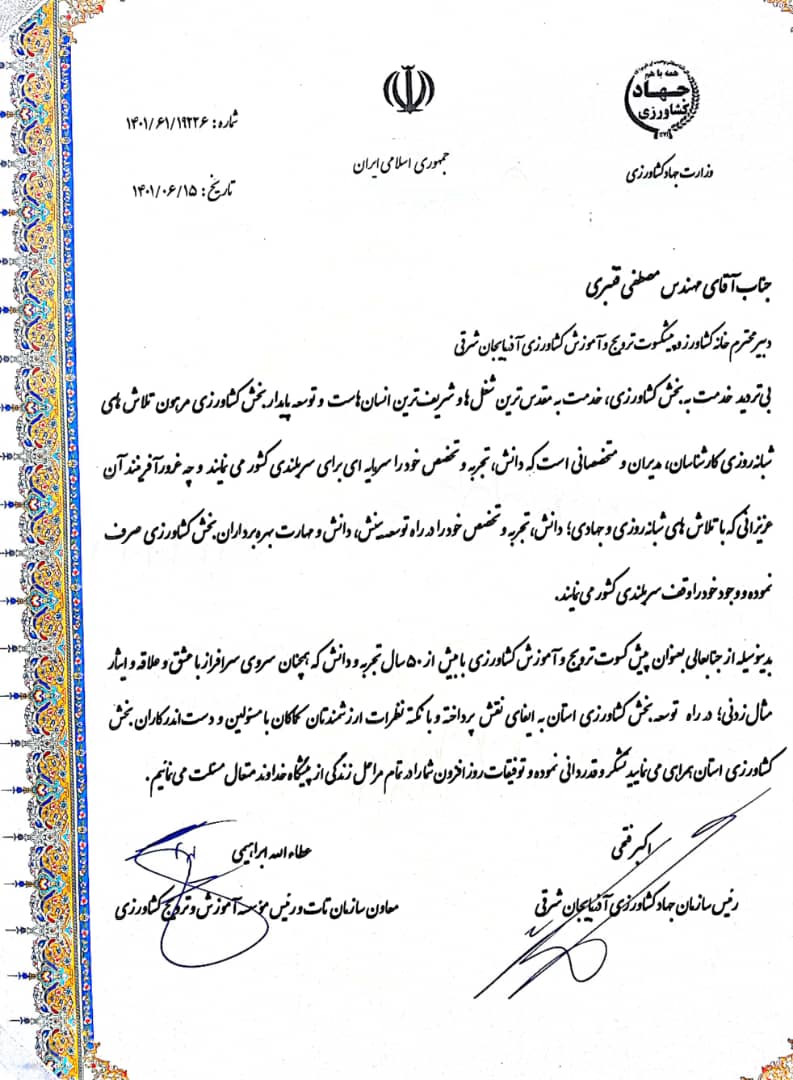 همه با هم
جهاد
کشاورزی
وزارت جهاد کشاورزی
جمهوری اسلامی ایران
شماره: ۱۴۰۱/۶۱/۱۹۲۳۶
تاریخ: ۱۴۰۱/۰۶/۱۵
جناب آقای مهندس مصطفی قنبری
دبیر محترم خانه کشاورز و پیشکسوت ترویج و آموزش کشاورزی آذربایجان شرقی
بی تردید خدمت به بخش کشاورزی، خدمت به مقدس ترین شغل ها و شریف ترین انسان هاست و توسعه پایدار بخش کشاورزی مرهون تلاش های
شبانه روزی کارشناسان، مدیران و متخصصانی است که دانش، تجربه و تخصص خود را سرمایه ای برای سربلندی کشور می نمایند و چه غرورآفرینند آن
عزیزانی که با تلاش های شبانه روزی و جهادی؛ دانش، تجربه و تخصص خود را در راه توسعه بینش، دانش و مهارت بهره برداران بخش کشاورزی صرف
نموده و وجود خود را وقف سربلندی کشور می نمایند.
بدینوسیله از جنابعالی بعنوان پیش کسوت ترویج و آموزش کشاورزی با بیش از ۵۰ سال تجربه و دانش که همچنان سروی سرافراز با عشق و علاقه و ایثار
مثال زدنی؛ در راه توسعه بخش کشاورزی استان به ایفای نقش پرداخته و با نکته نظرات ارزشمندتان کماکان با مسئولین و دست اندرکاران بخش
کشاورزی استان همراهی می نمایید تشکر و قدردانی نموده و توفیقات روزافزون شما را در تمام مراحل زندگی از پیشگاه خداوند متعال مسئلت می نمائیم.
اکبر فتحی
رئیس سازمان جهاد کشاورزی آذربایجان شرقی
عطاء اله ابراهیمی
معاون سازمان تات و رئیس مؤسسه آموزش و ترویج کشاورزی